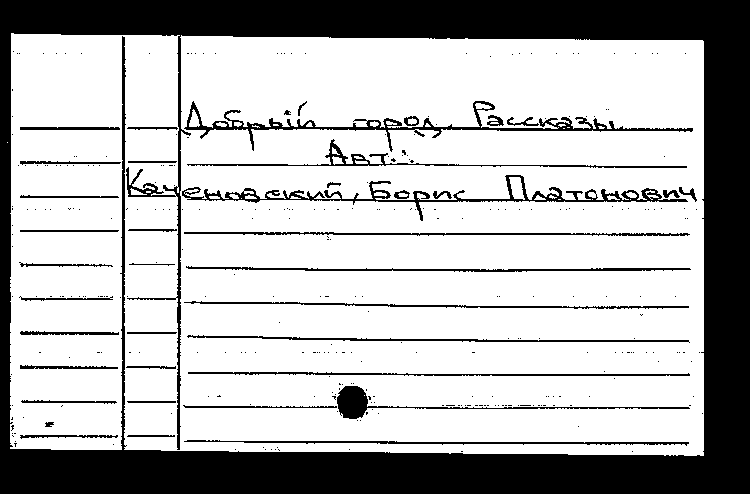 Добрый город. Рассказы
Авт.:
Каченовский, Борис Платонович